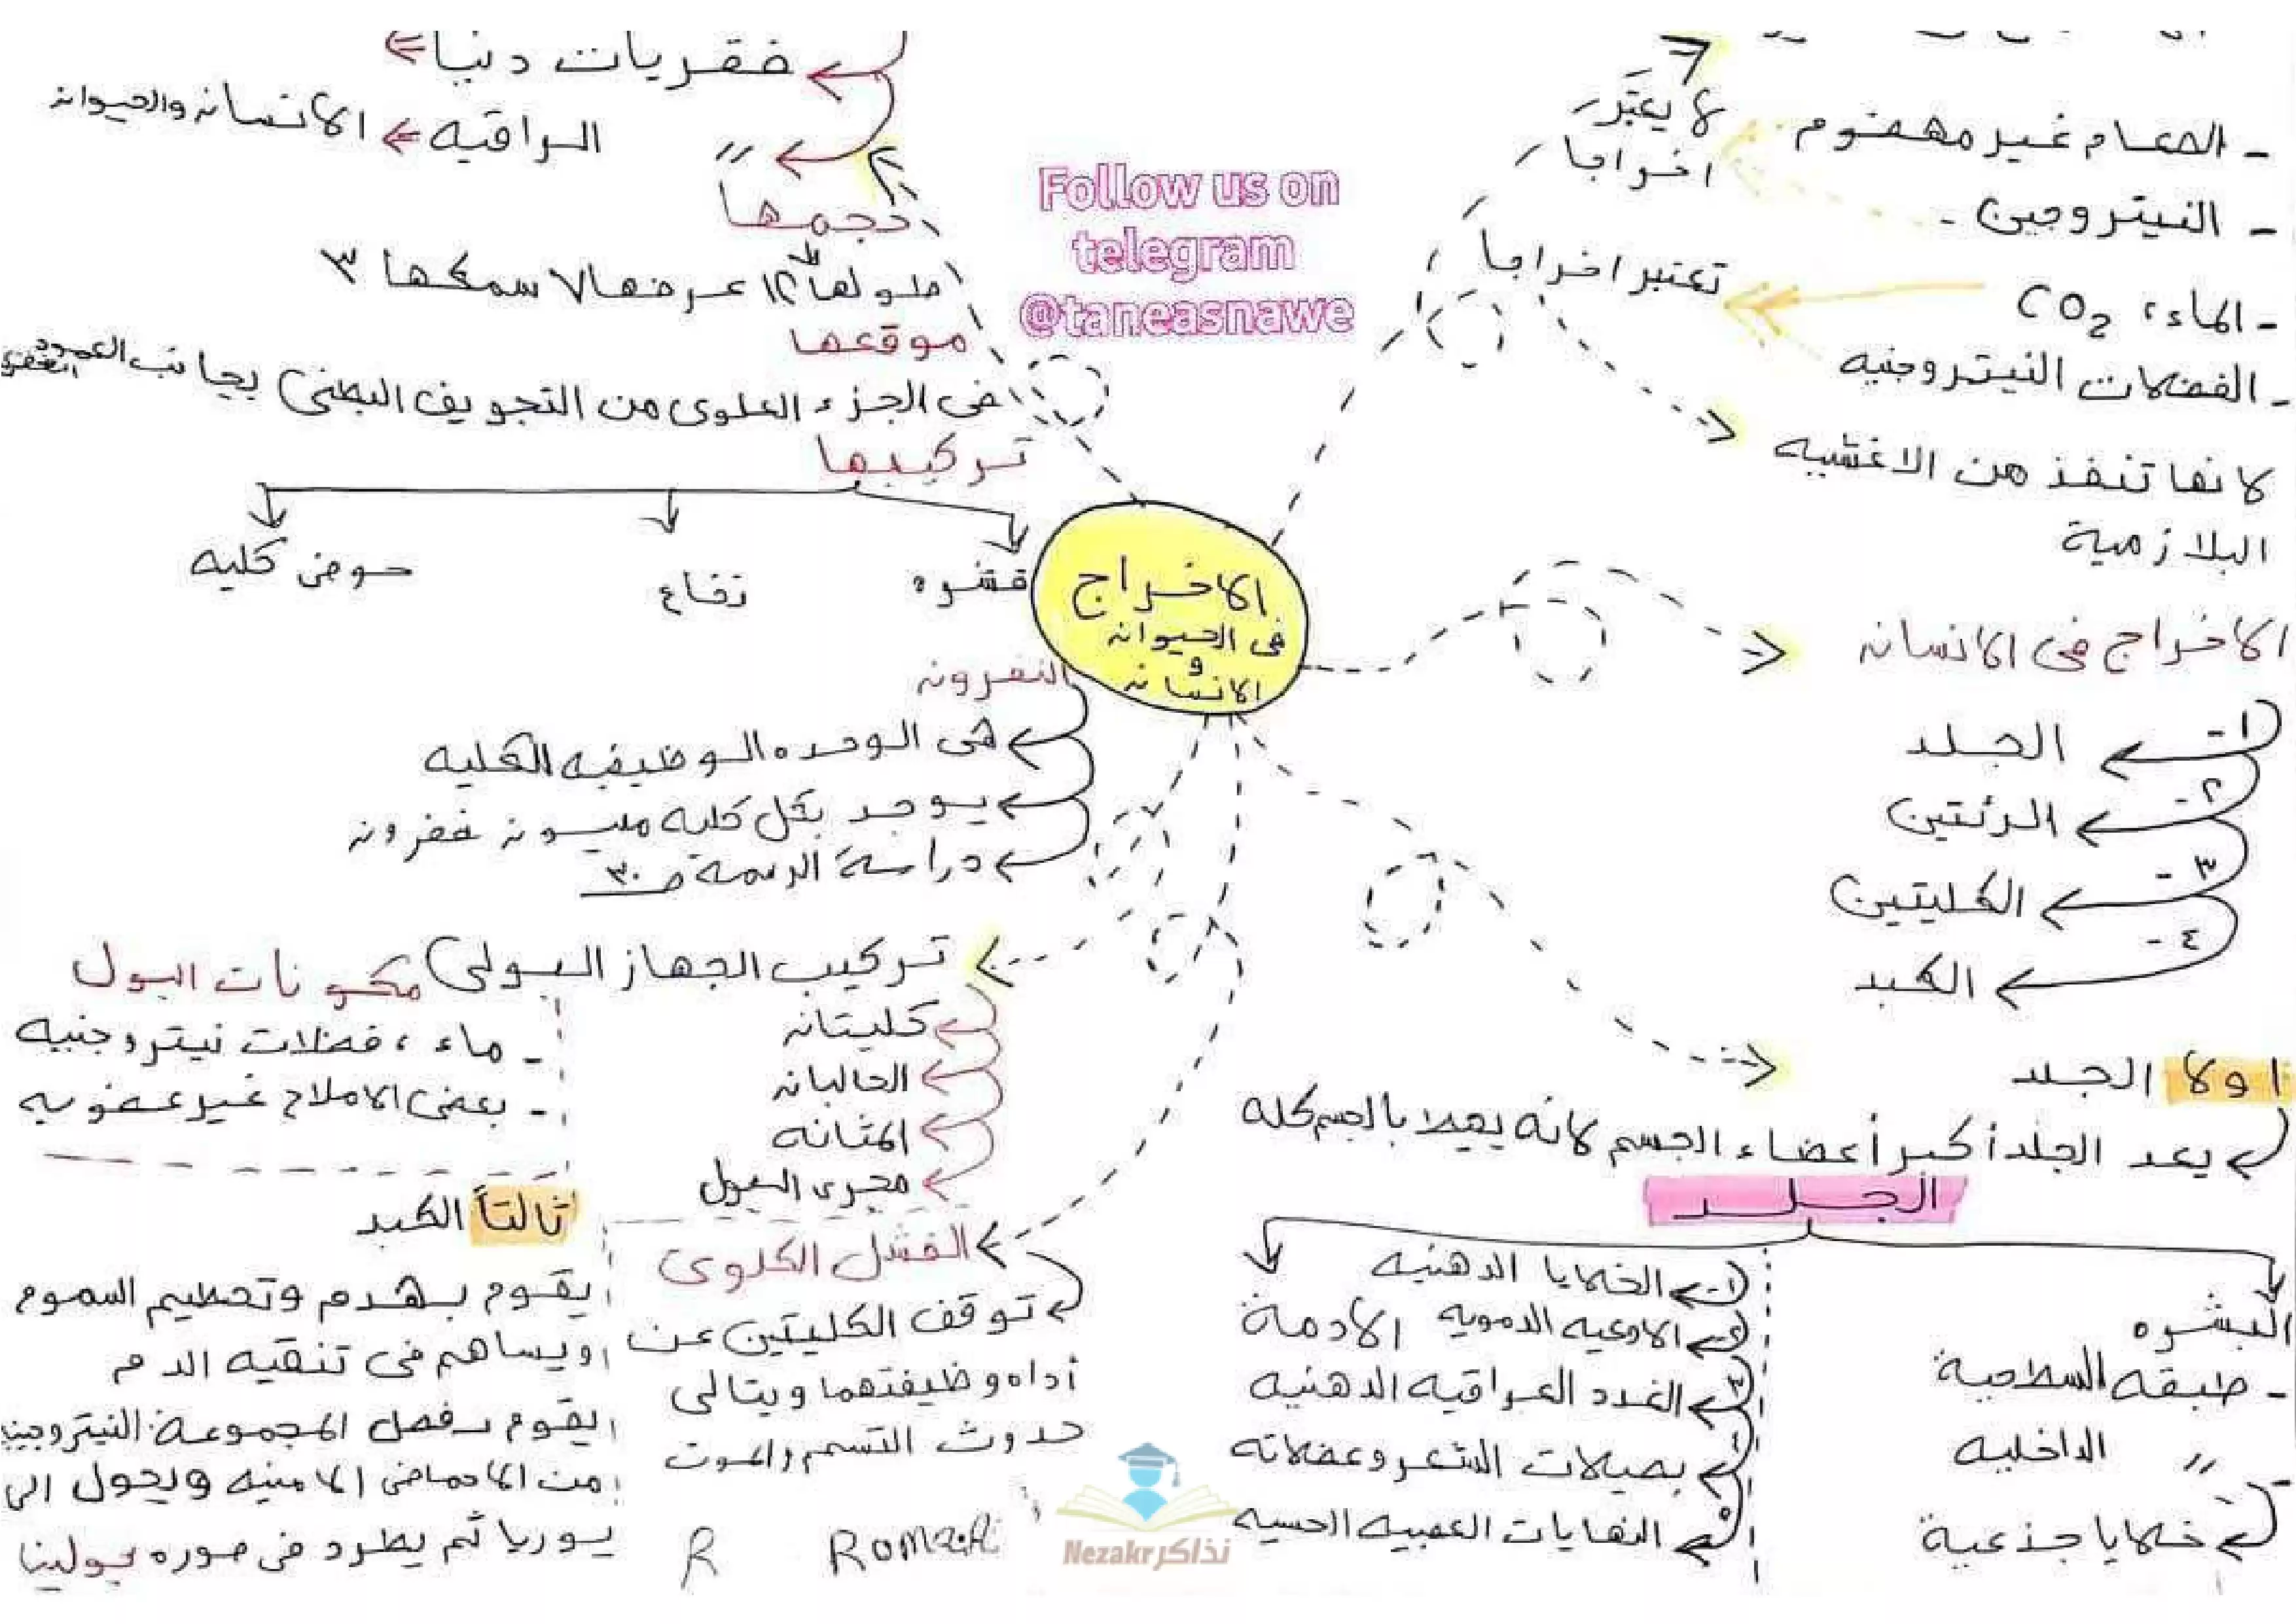 - الطعام غير مهضوم
لا يعتبر
اخراجا
- النيتروجين
- الماء، CO2
تعتبر اخراجاً
- الفضلات النيتروجنيه
لانها تنفذ من الاغشيه
البلازمية
الاخراج فى الانسان
١- الجلد
٢- الرئتين
٣- الكليتين
٤- الكبد
اولا الجلد
يعد الجلد أكبر أعضاء الجسم لانه يحيط بالجسم كله
الجلد
البشره
- طبقه السلامية
" الداخليه
خلايا جذعية
الأدمة
الخلايا الدهنيه
الاوعيه الدمويه
الغدد العراقيه الدهنيه
بصيلات الشعر وعضلاته
النهايات العصبيه الحسيه
Follow us on
telegram
@taneasnawe
الاخراج
فى الحيوان
و
الانسان
فقريات دنيا
" الراقيه الانسان والحيوان
حجمها
طولها ١٢ عرضها ٧ سمكها ٣
موقعها
فى الجزء العلوى من التجويف البطنى بجانب العمود الفقرى
تركيبها
قشره
نخاع
حوض كليه
النفرون
هى الوحده الوظيفيه الكليه
يوجد بكل كليه مليون نفرون
دراسة الرسمة ص ٣٠
تركيب الجهاز البولى
كليتان
الحالبان
المثانه
مجرى البول
مكونات البول
- ماء، فضلات نيتروجنيه
- بعض الاملاح غير عضويه
الفشل الكلوى
توقف الكليتين عن
أداه وظيفتهما وبتالى
حدوث التسمم والموت
ثالثاً الكبد
يقوم بهدم وتحطيم السموم
ويساهم فى تنقيه الدم
يقوم بفصل المجموعة النيتروجينيه
من الاحماض الامنيه ويحول الى
يوريا ثم يطرد فى صوره بولينا
R
نذاكر Nezakr